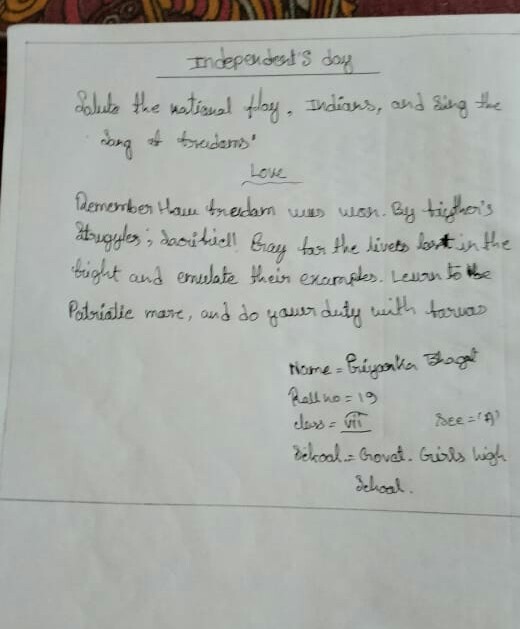 Independent's day
Salute the national flag, Indians, and Sing the
Song of freedoms'
Love
Remember How freedom was won. By fighter's
Struggles, Sacrifice!! Pray for the lives lost in the
fight and emulate their examples. Learn to be
Patriotic more, and do your duty with
Name = Priyanka Bhagat
Roll no = 19
class = VII Sec = 'A'
School = Govt. Girls high
School.